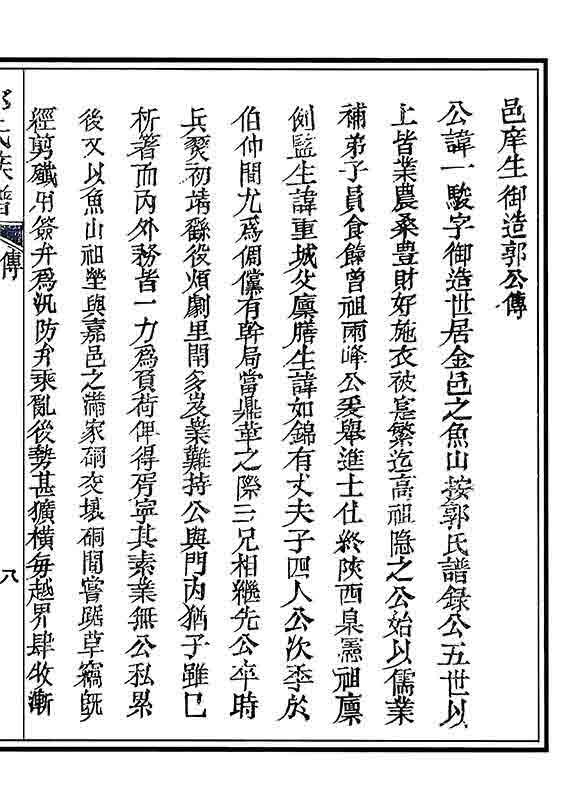 邑庠生御造郭公傳
公諱一駿字御造世居金邑之魚山按郭氏譜録公五世以
上皆業農桑豊財好施衣被寔繁迄高祖隐之公始以儒業
補弟子員食餼曾祖雨峰公爰舉進士仕終陜西臬憲祖廪
例監生諱重城父廪膳生諱如錦有丈夫子四人公次季於
伯仲間尤爲倜儻有幹局當鼎革之際三兄相繼先公卒時
兵燹初靖繇役煩劇里閈多炭業難持公與門内猶子雖已
析箸而内外務者一力爲負荷俾得胥寧其素業無公私累
後又以魚山祖塋與嘉邑之滿家硐交壤硐聞嘗踞草竊既
經剪殲用營弁爲汛防弁乘亂後勢甚獷橫每越界肆牧漸
氏族譜
傳
八